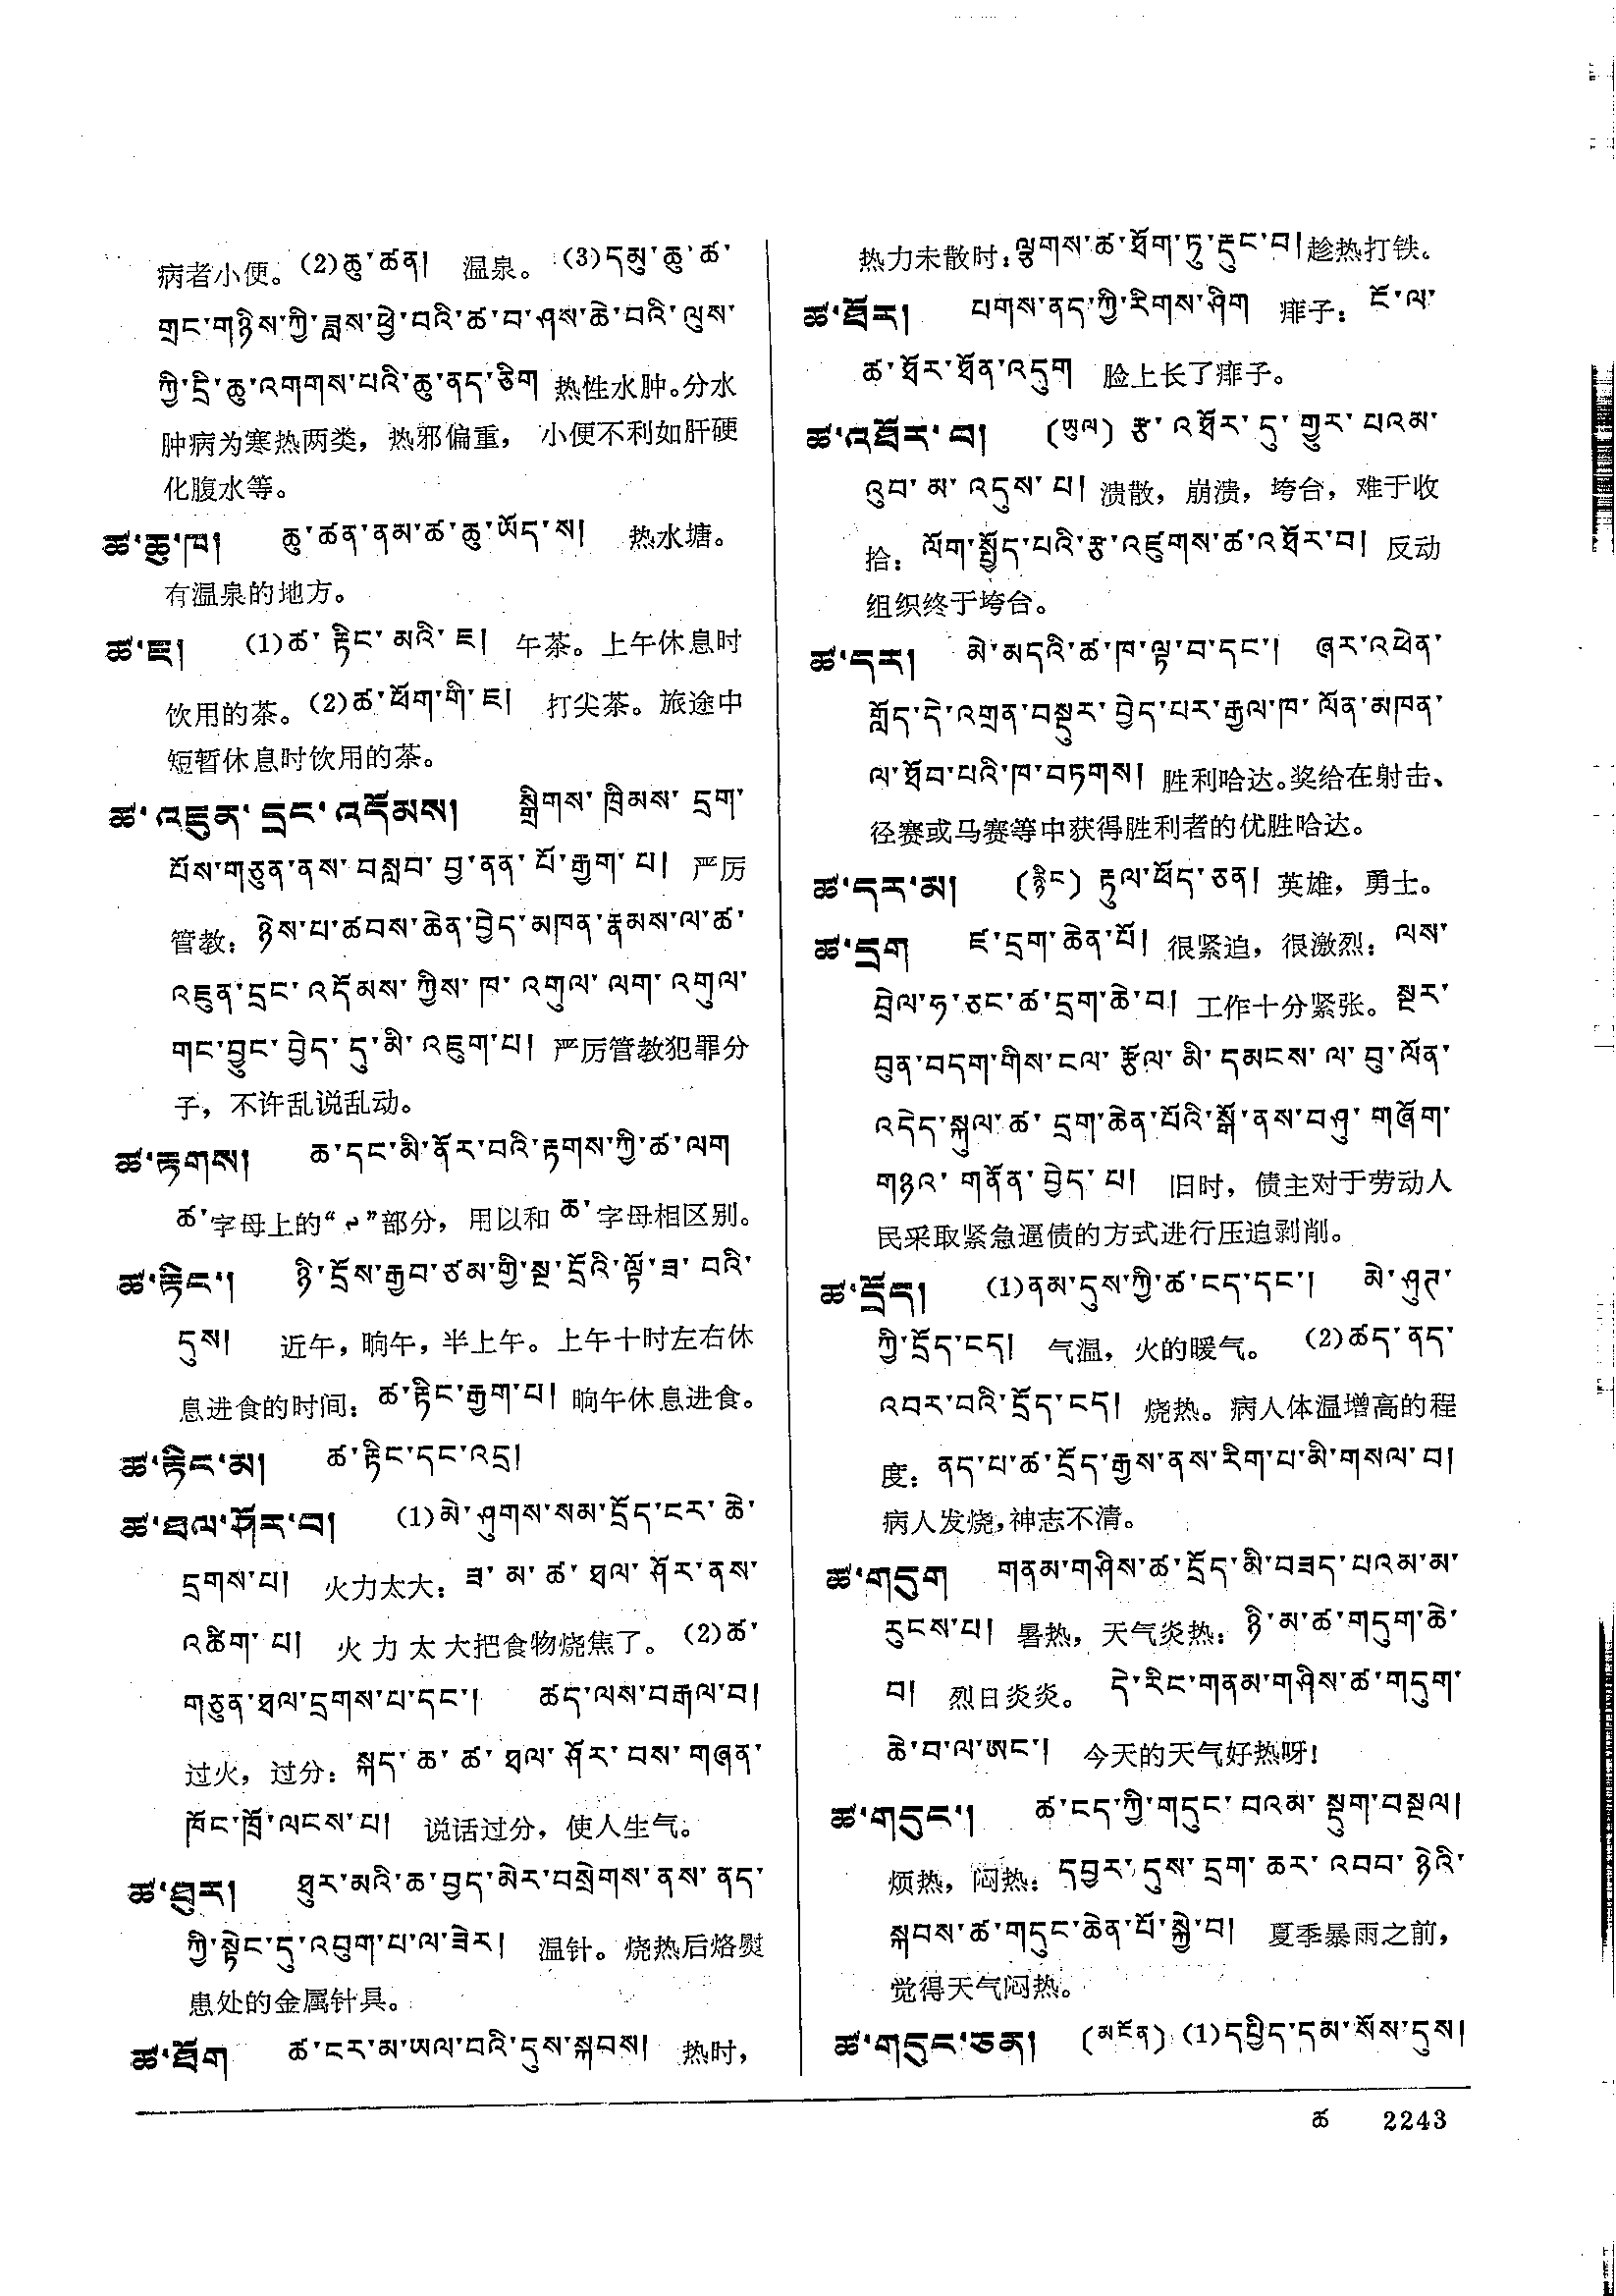 病者小便。(2)ཆུ་ཚན། 温泉。(3)དམུ་ཆུ་ཚ་
གྲང་གཉིས་ཀྱི་ཟླས་ཕྱེ་བའི་ཚ་བ་ཤས་ཆེ་བའི་ལུས་
ཀྱི་དྲི་ཆུ་འགགས་པའི་ཆུ་ནད་ཅིག 热性水肿。分水
肿病为寒热两类，热邪偏重，小便不利如肝硬
化腹水等。
ཚ་ཆུ་ཁ། ཆུ་ཚན་ནམ་ཚ་ཆུ་ཡོད་ས། 热水塘。
有温泉的地方。
ཚ་ཇ། (1)ཚ་རྟིང་མའི་ཇ། 午茶。上午休息时
饮用的茶。(2)ཚ་ཕོག་གི་ཇ། 打尖茶。旅途中
短暂休息时饮用的茶。
ཚ་འཇུན་དྲང་འདོམས། སྒྲིགས་ཁྲིམས་དྲག་
པོས་གཅུན་ནས་བསླབ་བྱ་ནན་པོ་རྒྱག་པ། 严厉
管教：ཉེས་པ་ཚབས་ཆེན་བྱེད་མཁན་རྣམས་ལ་ཚ་
འཇུན་དྲང་འདོམས་ཀྱིས་ཁ་འགུལ་ལག་འགུལ་
གང་བྱུང་བྱེད་དུ་མི་འཇུག་པ། 严厉管教犯罪分
子，不许乱说乱动。
ཚ་རྟགས། ཆ་དང་མི་ནོར་བའི་རྟགས་ཀྱི་ཚ་ལག
ཚ་字母上的“༹”部分，用以和ཆ་字母相区别。
ཚ་རྟིང་། ཉི་དྲོས་རྒྱབ་ཙམ་གྱི་སྔ་དྲོའི་ལྟོ་ཟ་བའི་
དུས། 近午，晌午，半上午。上午十时左右休
息进食的时间：ཚ་རྟིང་རྒྱག་པ། 晌午休息进食。
ཚ་རྟིང་མ། ཚ་རྟིང་དང་འདྲ།
ཚ་ཐལ་ཤོར་བ། (1)མེ་ཤུགས་སམ་དྲོད་ངར་ཆེ་
དྲགས་པ། 火力太大：ཟ་མ་ཚ་ཐལ་ཤོར་ནས་
འཚིག་པ། 火力太大把食物烧焦了。(2)ཚ་
གཅུན་ཐལ་དྲགས་པ་དང་། ཚད་ལས་བརྒལ་བ།
过火，过分：སྐད་ཆ་ཚ་ཐལ་ཤོར་བས་གཞན་
ཁོང་ཁྲོ་ལངས་པ། 说话过分，使人生气。
ཚ་ཐུར། ཐུར་མའི་ཆ་བྱད་མེར་བསྲེགས་ནས་ནད་
ཀྱི་སྟེང་དུ་འབུག་པ་ལ་ཟེར། 温针。烧热后烙熨
患处的金属针具。
ཚ་ཐོག ཚ་ངར་མ་ཡལ་བའི་དུས་སྐབས། 热时，
热力未散时：ལྕགས་ཚ་ཐོག་ཏུ་རྡུང་བ། 趁热打铁。
ཚ་ཐོར། པགས་ནད་ཀྱི་རིགས་ཤིག 痱子：ངོ་ལ་
ཚ་ཐོར་ཐོན་འདུག 脸上长了痱子。
ཚ་འཐོར་བ། (ཡུལ) རྩ་འཐོར་དུ་གྱུར་པའམ་
འུབ་མ་འདུས་པ། 溃散，崩溃，垮台，难于收
拾：ལོག་སྤྱོད་པའི་རྩ་འཛུགས་ཚ་འཐོར་བ། 反动
组织终于垮台。
ཚ་དར། མེ་མདའི་ཚ་ཁ་ལྟ་བ་དང་། ཞར་འཕེན་
གློད་དེ་འགྲན་བསྡུར་བྱེད་པར་རྒྱལ་ཁ་ལོན་མཁན་
ལ་ཐོབ་པའི་ཁ་བཏགས། 胜利哈达。奖给在射击、
径赛或马赛等中获得胜利者的优胜哈达。
ཚ་དར་མ། (རྙིང) རྟུལ་ཕོད་ཅན། 英雄，勇士。
ཚ་དྲག ཛ་དྲག་ཆེན་པོ། 很紧迫，很激烈：ལས་
བྲེལ་ཧ་ཅང་ཚ་དྲག་ཆེ་བ། 工作十分紧张。སྔར་
བུན་བདག་གིས་ངལ་རྩོལ་མི་དམངས་ལ་བུ་ལོན་
འདེད་སྐུལ་ཚ་དྲག་ཆེན་པོའི་སྒོ་ནས་བཤུ་གཞོག་
གཉའ་གནོན་བྱེད་པ། 旧时，债主对于劳动人
民采取紧急逼债的方式进行压迫剥削。
ཚ་དྲོད། (1)ནམ་དུས་ཀྱི་ཚ་ངད་དང་། མེ་ཤུཊ་
ཀྱི་དྲོད་ངད། 气温，火的暖气。(2)ཚད་ནད་
འབར་བའི་དྲོད་ངད། 烧热。病人体温增高的程
度：ནད་པ་ཚ་དྲོད་རྒྱས་ནས་རིག་པ་མི་གསལ་བ།
病人发烧，神志不清。
ཚ་གདུག གནམ་གཤིས་ཚ་དྲོད་མི་བཟད་པའམ་མ་
རུངས་པ། 暑热，天气炎热：ཉི་མ་ཚ་གདུག་ཆེ་
བ། 烈日炎炎。 དེ་རིང་གནམ་གཤིས་ཚ་གདུག་
ཆེ་བ་ལ་ཨང་། 今天的天气好热呀！
ཚ་གདུང་། ཚ་ངད་ཀྱི་གདུང་བའམ་སྡུག་བསྔལ།
烦热，闷热：དབྱར་དུས་དྲག་ཆར་འབབ་ཉེའི་
སྐབས་ཚ་གདུང་ཆེན་པོ་སྐྱེ་བ། 夏季暴雨之前，
觉得天气闷热。
ཚ་གདུང་ཅན། (མངོན) (1)དཔྱིད་དམ་སོས་དུས།
ཚ 2243